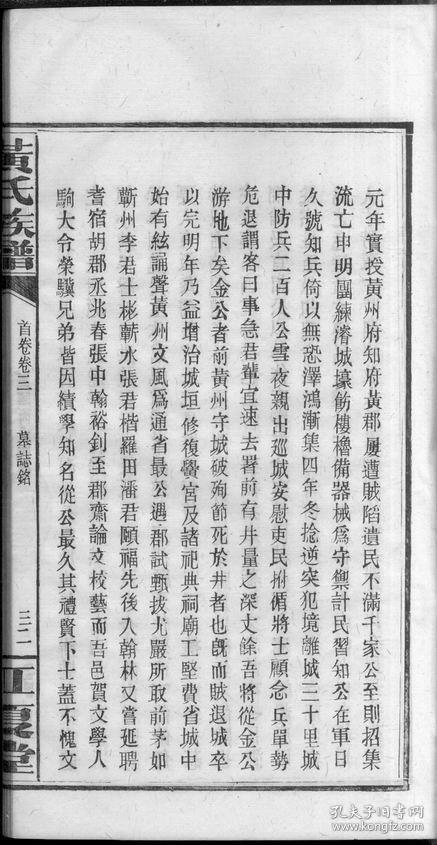 元年實授黃州府知府黃郡屢遭賊陷遺民不滿千家公至則招集
流亡申明團練濬城壕飭樓櫓備器械爲守禦計民習知公在軍日
久號知兵倚以無恐澤鴻漸集四年冬捻逆突犯境離城三十里城
中防兵二百人公雪夜親出巡城安慰吏民拊循將士顧念兵單勢
危退謂客曰事急君輩宜速去署前有井量之深丈餘吾將從金公
游地下矣金公者前黃州守城破殉節死於井者也旣而賊退城卒
以完明年乃益增治城垣修復黌宮及諸祀典祠廟工堅費省城中
始有絃誦聲黃州文風爲通省最公遇郡試甄拔尤嚴所取前茅如
蘄州李君士彬蘄水張君楷羅田潘君頤福先後入翰林又嘗延聘
耆宿胡郡丞兆春張中翰裕釗至郡齋論文校藝而吾邑賀文學人
駒大令榮驥兄弟皆因績學知名從公最久其禮賢下士蓋不愧文
黃氏族譜
首卷卷三
墓誌銘
三二
江夏堂
孔夫子旧书网
www.kongfz.com